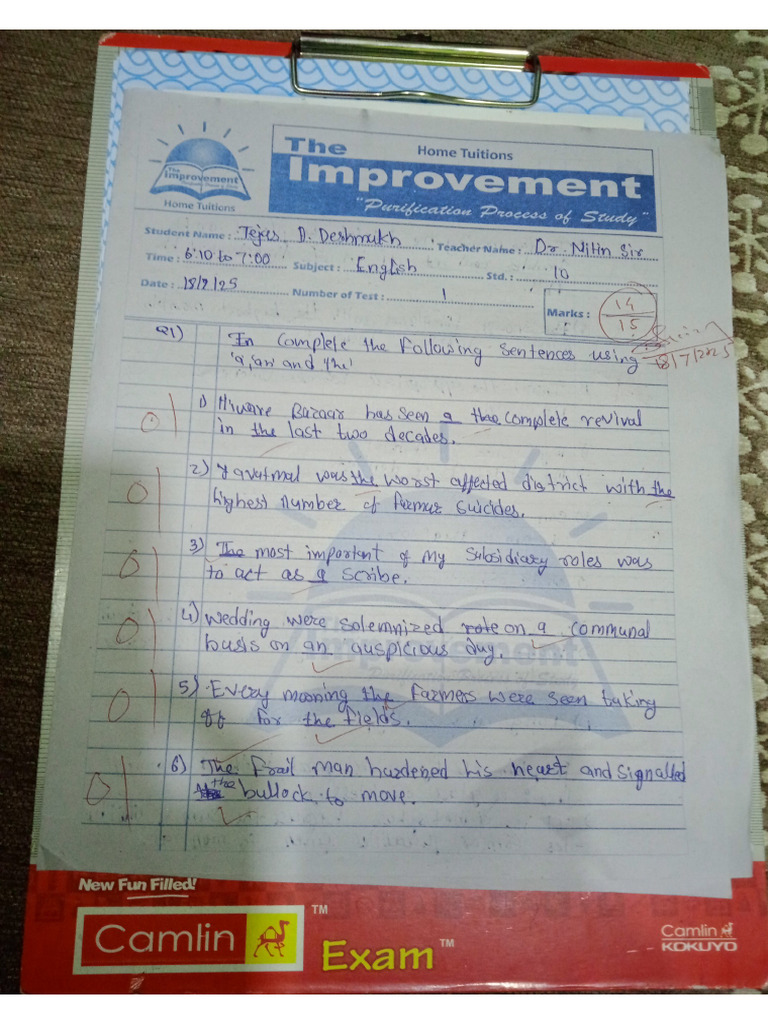 The
Improvement
Home Tuitions
The Home Tuitions
Improvement
"Purification Process of Study"
Student Name : Tejas D. Deshmukh Teacher Name : Dr Nitin Sir
Time : 6:10 to 7:00 Subject : English Std. : 10
Date : 18/7/25 Number of Test : 1 Marks : 14/15
18/7/2025
Q1) In complete the following sentences using
'a, an' and 'the'
1) Hiware Bazaar has seen a the complete revival
in the last two decades.
2) Yavatmal was the worst affected district with the
highest number of farmur suicides.
3) The most important of my subsidiary roles was
to act as a scribe.
4) wedding were solemnized on a communal
basis on an auspicious day.
5) Every mooning the farmers were seen taking
off for the fields.
6) The frail man hardened his heart and signalled
the bullock to move.
New Fun Filled!
Camlin TM
Exam TM
Camlin
KOKUYO